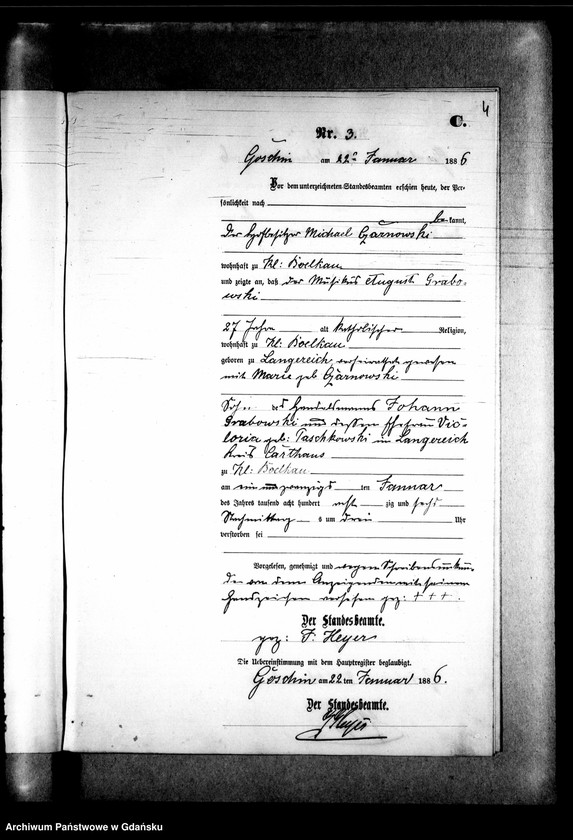 4
C.
Nr. 3.
Göschin am 22ten Januar 1886
Vor dem unterzeichneten Standesbeamten erschien heute, der Per-
sönlichkeit nach
be kannt,
Der Hofbesitzer Michael Czarnowski
wohnhaft zu Kl: Boelkau
und zeigte an, daß der Musikus August Grabo-
wski
27 Jahre alt katholischer Religion,
wohnhaft zu Kl: Boelkau
geboren zu Langereich, verheirathet gewesen
mit Marie geb Czarnowski
Sohn des Handelsmanns Johann
Grabowski und dessen Ehefrau Vic-
toria geb: Paschkowski in Langereich
Kreis Carthaus
zu Kl: Boelkau
am ein und zwanzigsten Januar
des Jahres tausend acht hundert acht zig und sechs
Nachmittags um drei Uhr
verstorben sei
Vorgelesen, genehmigt und wegen Schreibensunkun-
de von dem Anzeigenden mit seinem
Handzeichen versehen gez: + + +.
Der Standesbeamte.
gez: F. Heyer
Die Uebereinstimmung mit dem Hauptregister beglaubigt.
Göschin am 22 ten Januar 1886.
Der Standesbeamte.
Heyer
Archiwum Państwowe w Gdańsku